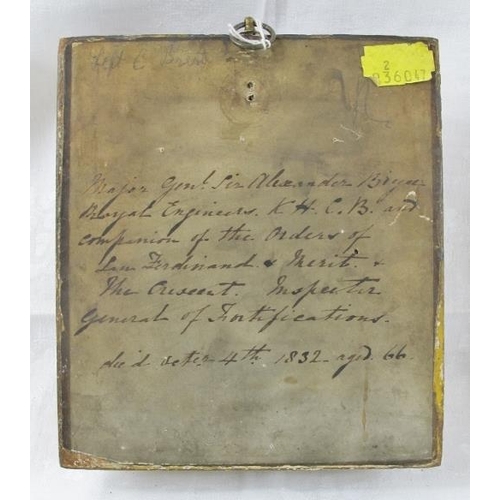 2
036047
Major Genl. Sir Alexander Bryce
Royal Engineers. K. H. C. B. and
companion of the Orders of
San Ferdinand & Merit. &
The Crescent. Inspector
General of Fortifications.
died octr. 4th 1832 aged 66.